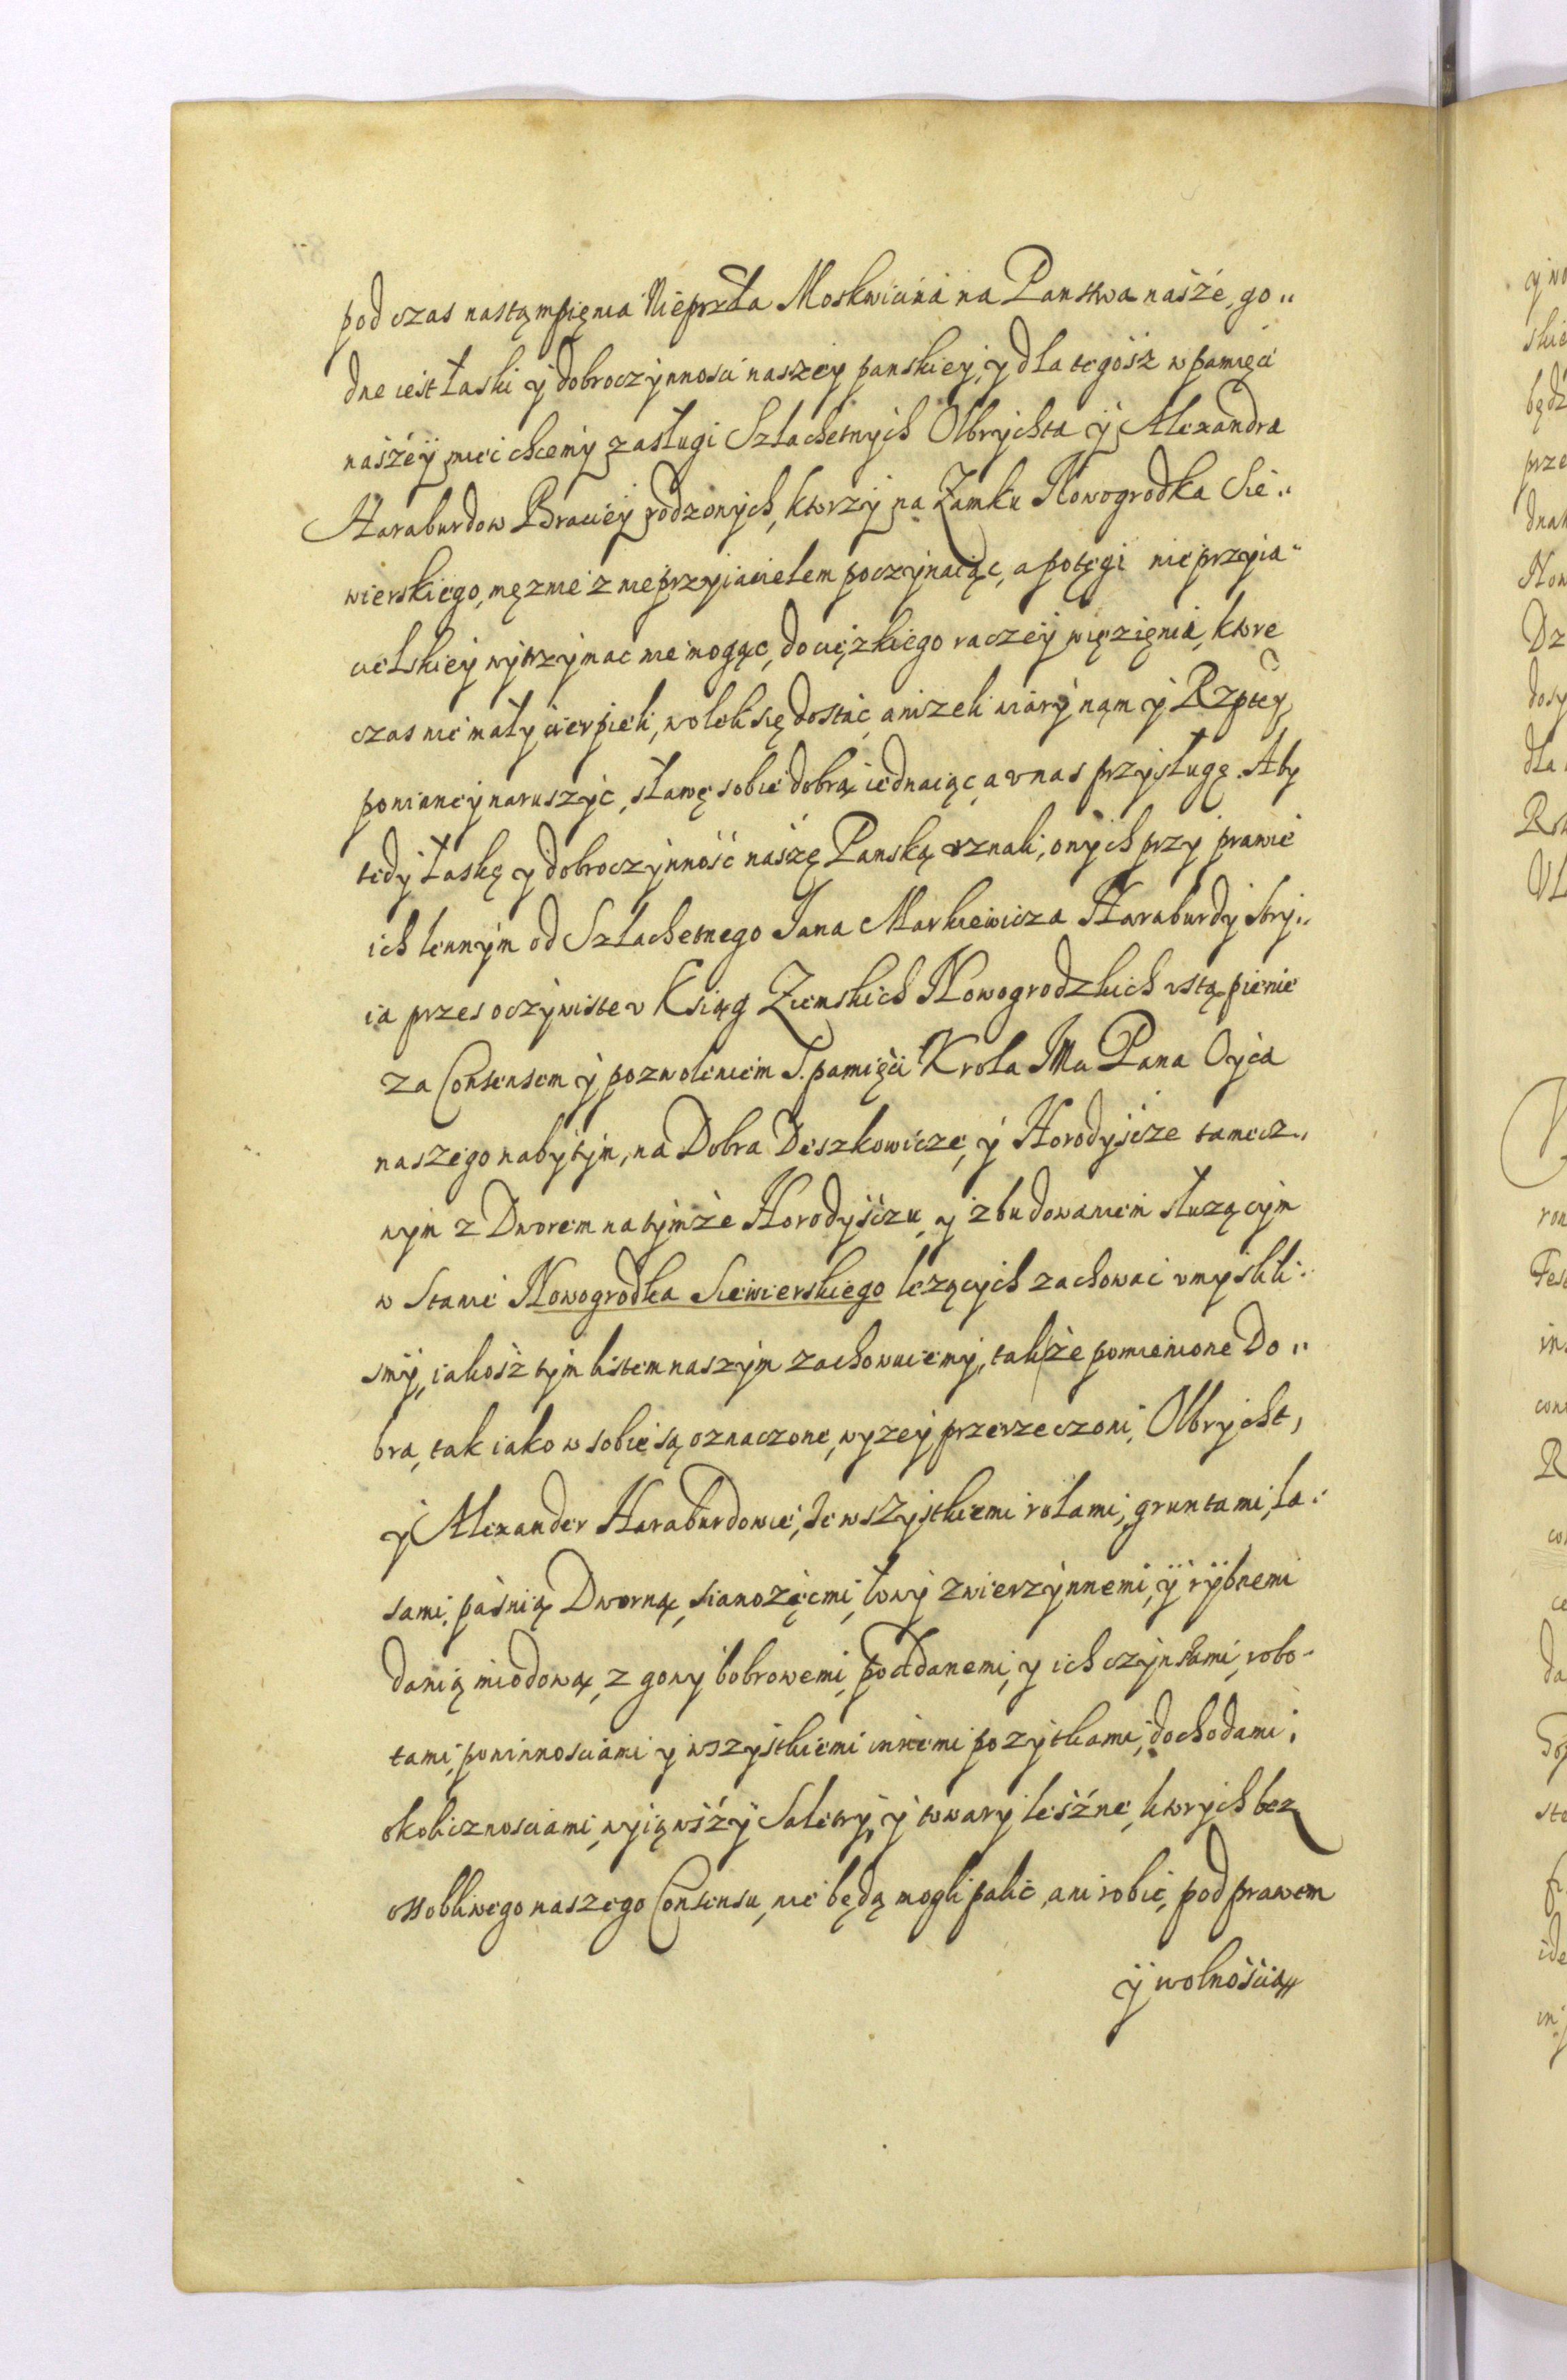 pod czas nastąmpięnia Nieprzła Moskwicina na Panstwa nasze, go„
dne iest łaski y dobroczynnosci naszey panskiey, y dla tegosz w pamięci
naszey mieć chcemy zasługi Szlachetnych Olbrychta y Alexandra
Haraburdow Braciey rodzonych, ktorzy na Zamku Nowogrodka Sie„
wierskiego, męznie z nieprzyiacielem poczynaiąc, a potęgi nieprzyia„
cielskiey wytrzymac nie mogąc, do cięzkiego raczey więzięnia, ktore
czas nie mały cierpieli, woleli się dostać, anizeli wiary nąm y Rzptey
powinney naruszyć, sławę sobie dobrą iednaiąc, a v nas przysługę. Aby
tedy łaskę y dobroczynność naszę Panską vznali, onych przy prawie
ich lennym od Szlachetnego Jana Markiewicza Haraburdy stry„
ia przes oczywiste v Ksiąg Ziemskich Nowogrodzkich vstąpienie
za Consensem y pozwoleniem S. pamięci Krola JMci Pana Oyca
naszego nabytym, na Dobra Deszkowicze, y Horodyscze tamecz„
nym z Dworem na tymże Horodysczu, y z budowaniem słuzącym
w Stanie Nowogrodka Siewierskiego lezących zachować vmyslili„
smy, iakosz tym listem naszym zachowuiemy, tak że pomienione Do„
bra, tak iako w sobie są oznaczone, wyzey przerzeczoni, Olbrycht,
y Alexander Haraburdowie, ze wszystkiemi rolami, gruntami, la„
sami, paśnią Dworną, sianozęćmi, łowy zwierzynnemi, y rybnemi
danią miodową, z gony bobrowemi, poddanemi, y ich czynszami, robo„
tami, powinnosciami y wszystkiemi innemi pozytkami, dochodami,
okolicznosciami, wyiąwszy Saletry, y towary leśne, ktorych bez
ossobliwego naszego Consensu, nie będą mogli palić, ani robić, pod prawem
y wolnością„